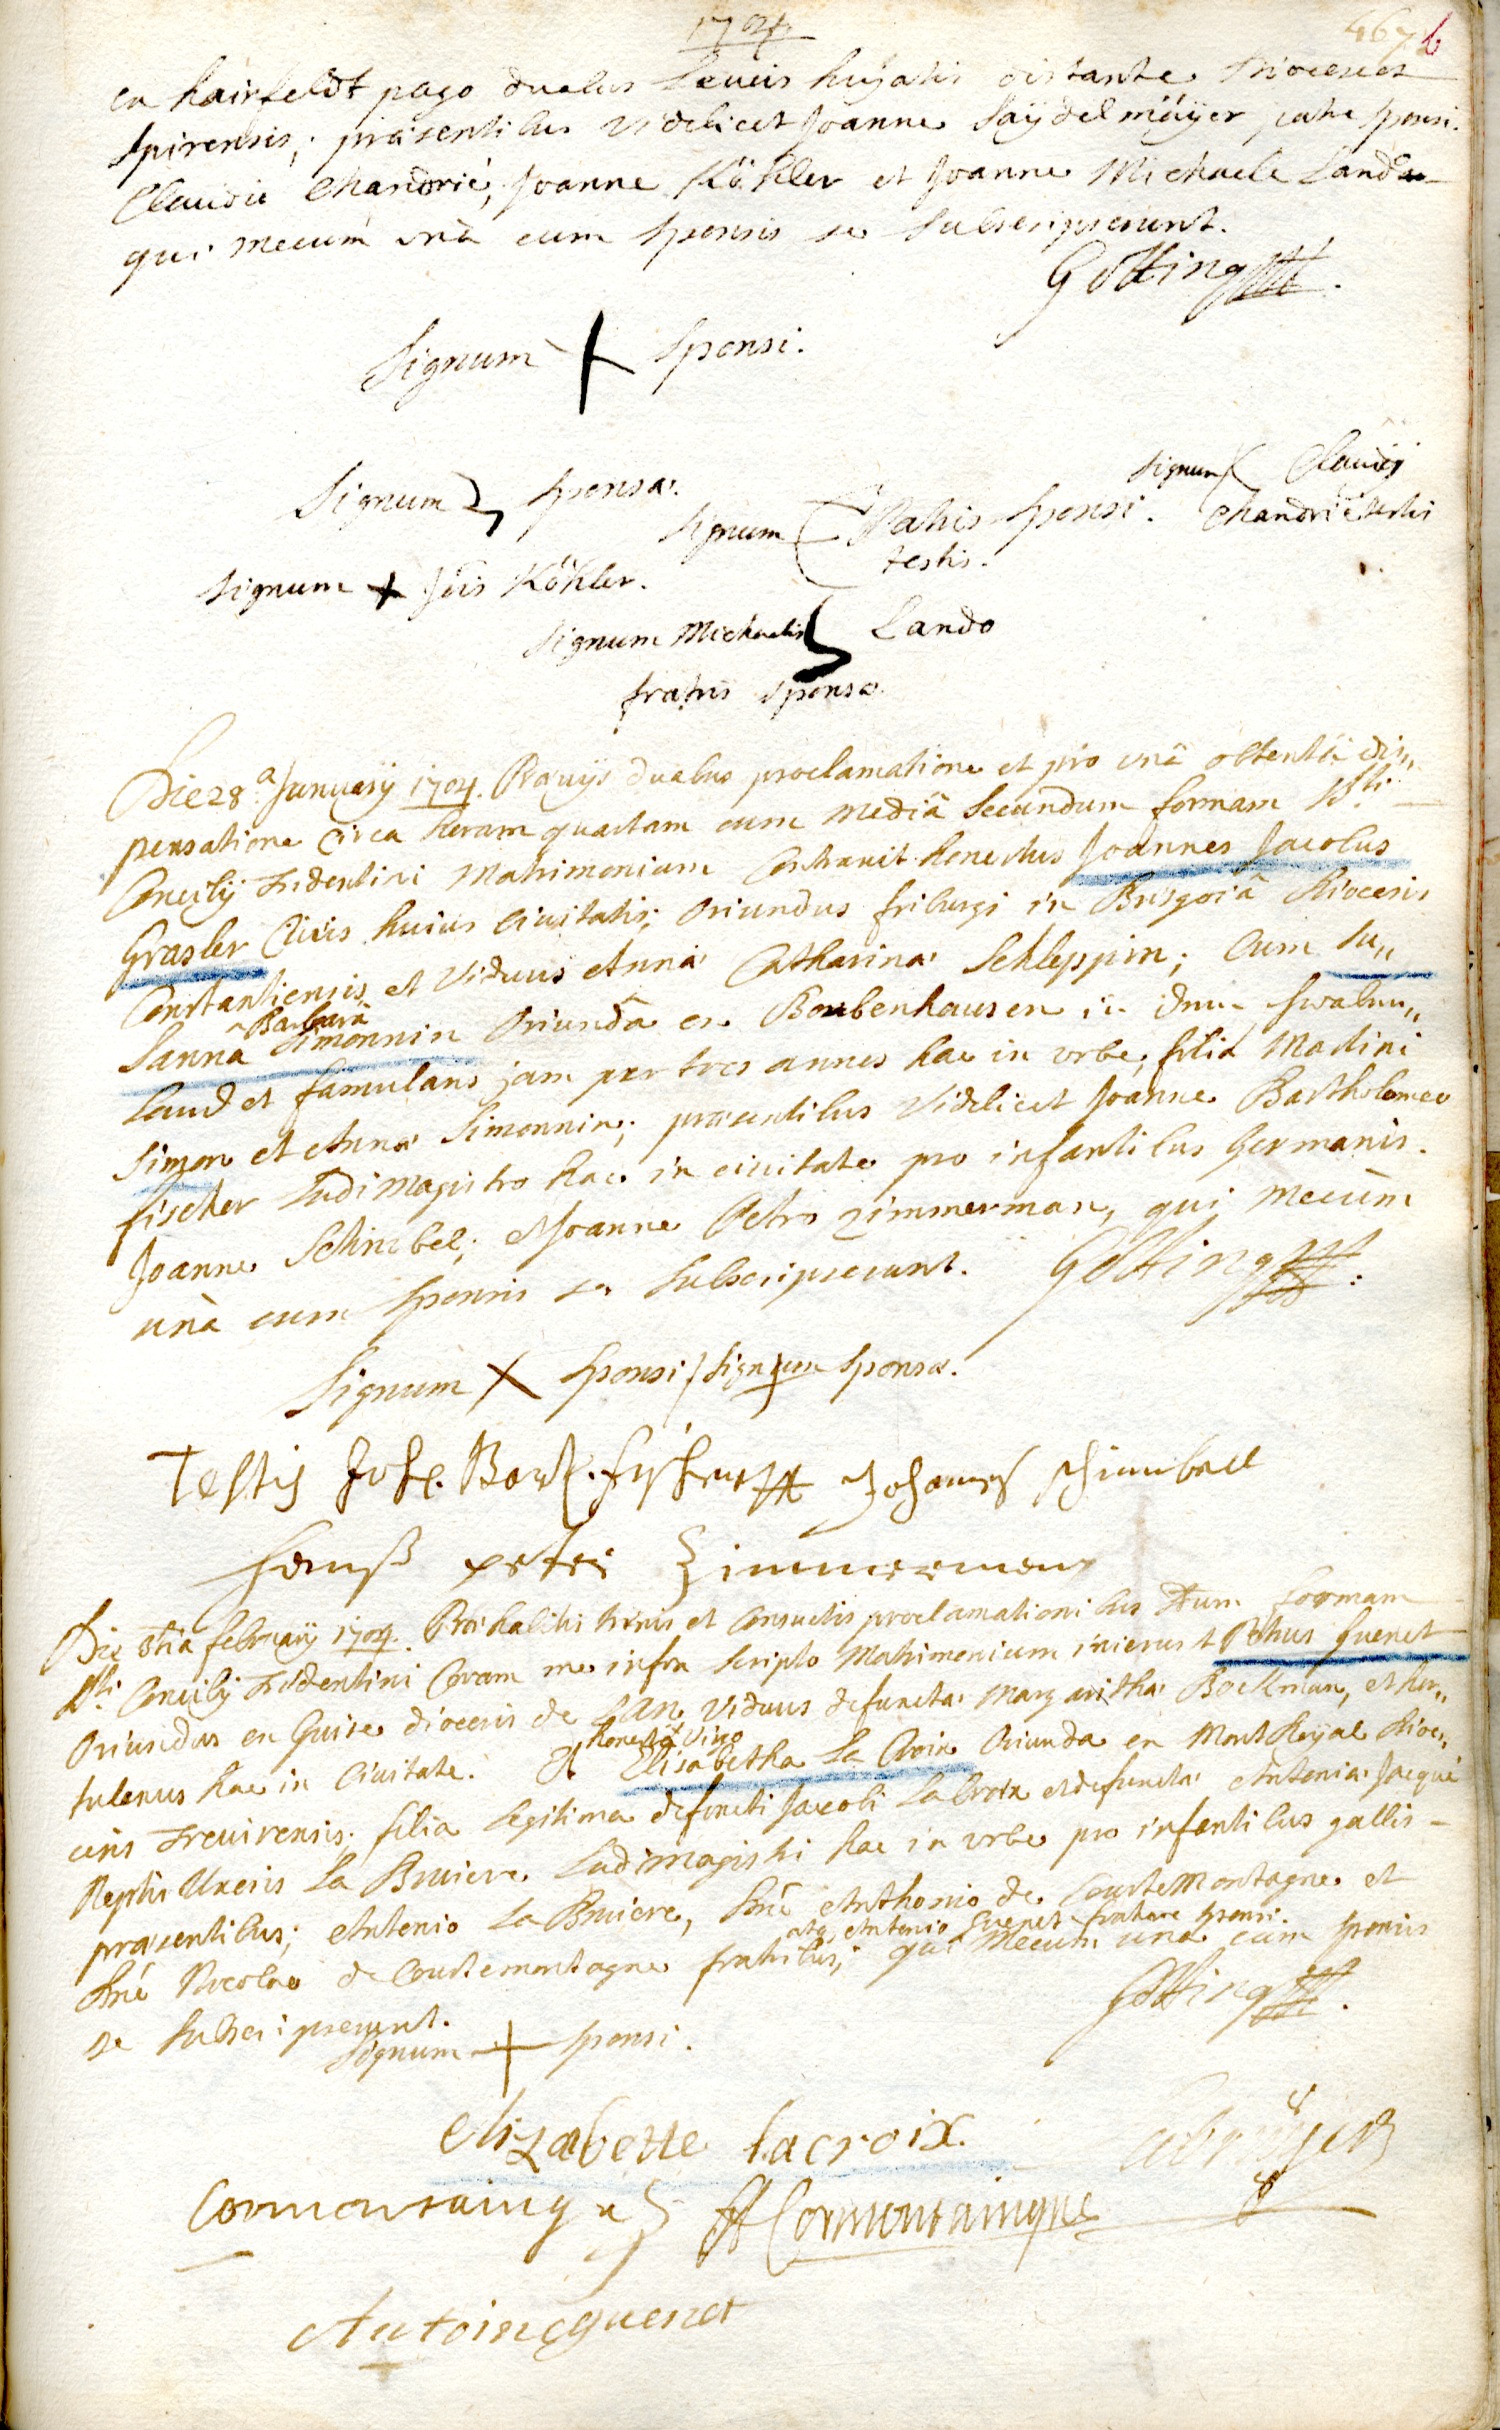 1704.
467 b
ex hairfeldt pago duabus Leucis hujatis distante Dioecesis
Spirensis; praesentibus videlicet Joanne Saÿdelmäÿer patre sponsi.
Claudio Chandrié, Joanne Köhler et Joanne Michaele Lando
qui mecum unà cum sponsis se subscripserunt.
Gotting
Signum + Sponsi.
Signum Claudij
Signum Sponsae.
Signum Patris Sponsi. Chandrié testis
testis.
Signum + Jōis Köhler.
Signum Michaelis Lando
fratris sponsae.
Die 28.a Januarij 1704. Praeviis duabus proclamatione et pro unâ obtentâ dis„
pensatione circa horam quartam cum mediâ secundum formam Sti
Concilij Tridentini Matrimonium contraxit honestus Joannes Jacobus
Grasler Civis huius Civitatis; oriundus friburgi in Brisgoiâ Dioecesis
Constantiensis et Viduus Annae Catharinae Schleppin; Cum Su„
Barbara
sanna Simonnin Oriundâ ex Boubenhausen in dem swaben„
Land et famulans jam per tres annos hac in urbe, filia Martini
Simon et Annae Simonnin; praesentibus videlicet Joanne Bartholomeo
fischer Ludimagistro hac in civitate pro infantibus Germanis.
Joanne Schimbel; et Joanne Petro Zimmerman, qui mecùm
unà cum sponsis se subscripserunt. Gotting
Signum X Sponsi / Signum sponsae.
Testis Joh. Barth. fischer Johannes schimbell
Hanß peter Zimmerman
Die 5tia februarij 1704. Prohabitis trinis et consuetis proclamationibus Dum formam
Sti Concilij Tridentini Coram me infra scripto Matrimonium inierunt Petrus Guenet
Oriundus ex Guise dioecesis de Lan Viduus defunctae Margarithae Bockman, et hor„
honesta Virgo
tulanus hac in Civitate. et Elisabetha La Croix Oriunda ex Mont Royal Dioe„
cesis Trevirensis; filia legitima defuncti Jacobi La Croix et defunctae Antoniae Jacqué
Neptis Uxoris La Bruiere Ludimagistri hac in urbe pro infantibus gallis
praesentibus; Antonio La Bruiere, Dno Anthonio de Courtemontagne et
atq Antonio Guenet fratre sponsi.
Dno Nicolao de Courtemontagne fratribus; qui Mecum unà cum sponsis
se subscripserunt. Gotting
Signum + Sponsi.
elizabette lacroix.
labruyer
Cormontaingue Cormontaingue
Antoine guenet